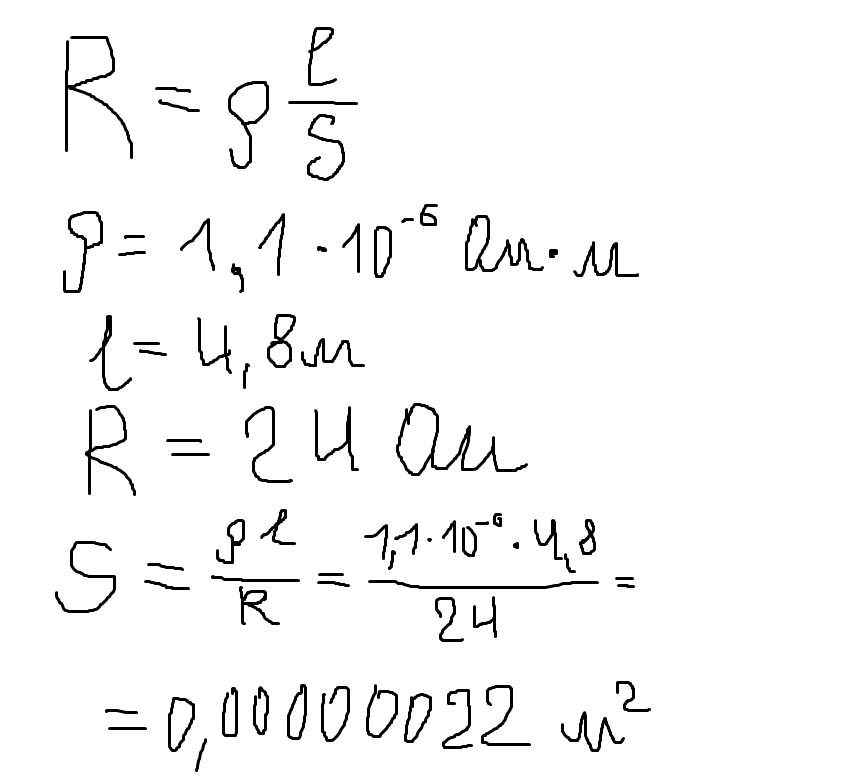 R = ρ l/S
ρ = 1,1 · 10⁻⁶ Ом · м
l = 4,8 м
R = 24 Ом
S = ρl/R = 1,1 · 10⁻⁶ · 4,8/24 =
= 0,00000022 м²